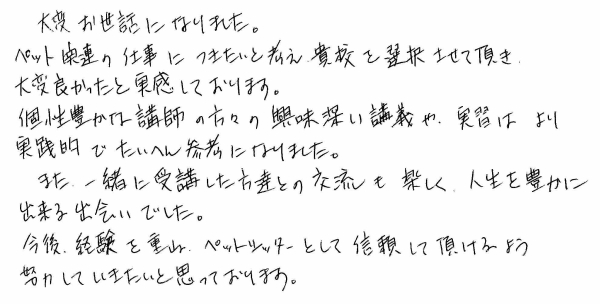 大変お世話になりました。
ペット関連の仕事につきたいと考え、貴校を選択させて頂き、
大変良かったと実感しております。
個性豊かな講師の方々の興味深い講義や、実習はより
実践的でたいへん参考になりました。
また、一緒に受講した方達との交流も楽しく、人生を豊かに
出来る出会いでした。
今後、経験を重ね、ペットシッターとして信頼して頂けるよう
努力していきたいと思っております。